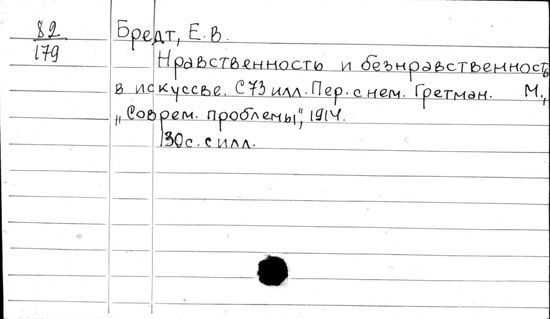 82
179
Бредт, Е.В.
Нравственность и безнравственность
в искуссве. С 73 илл. Пер. с нем. Гретман. М.,
„Соврем. проблемы", 1914.
130 с. с илл.